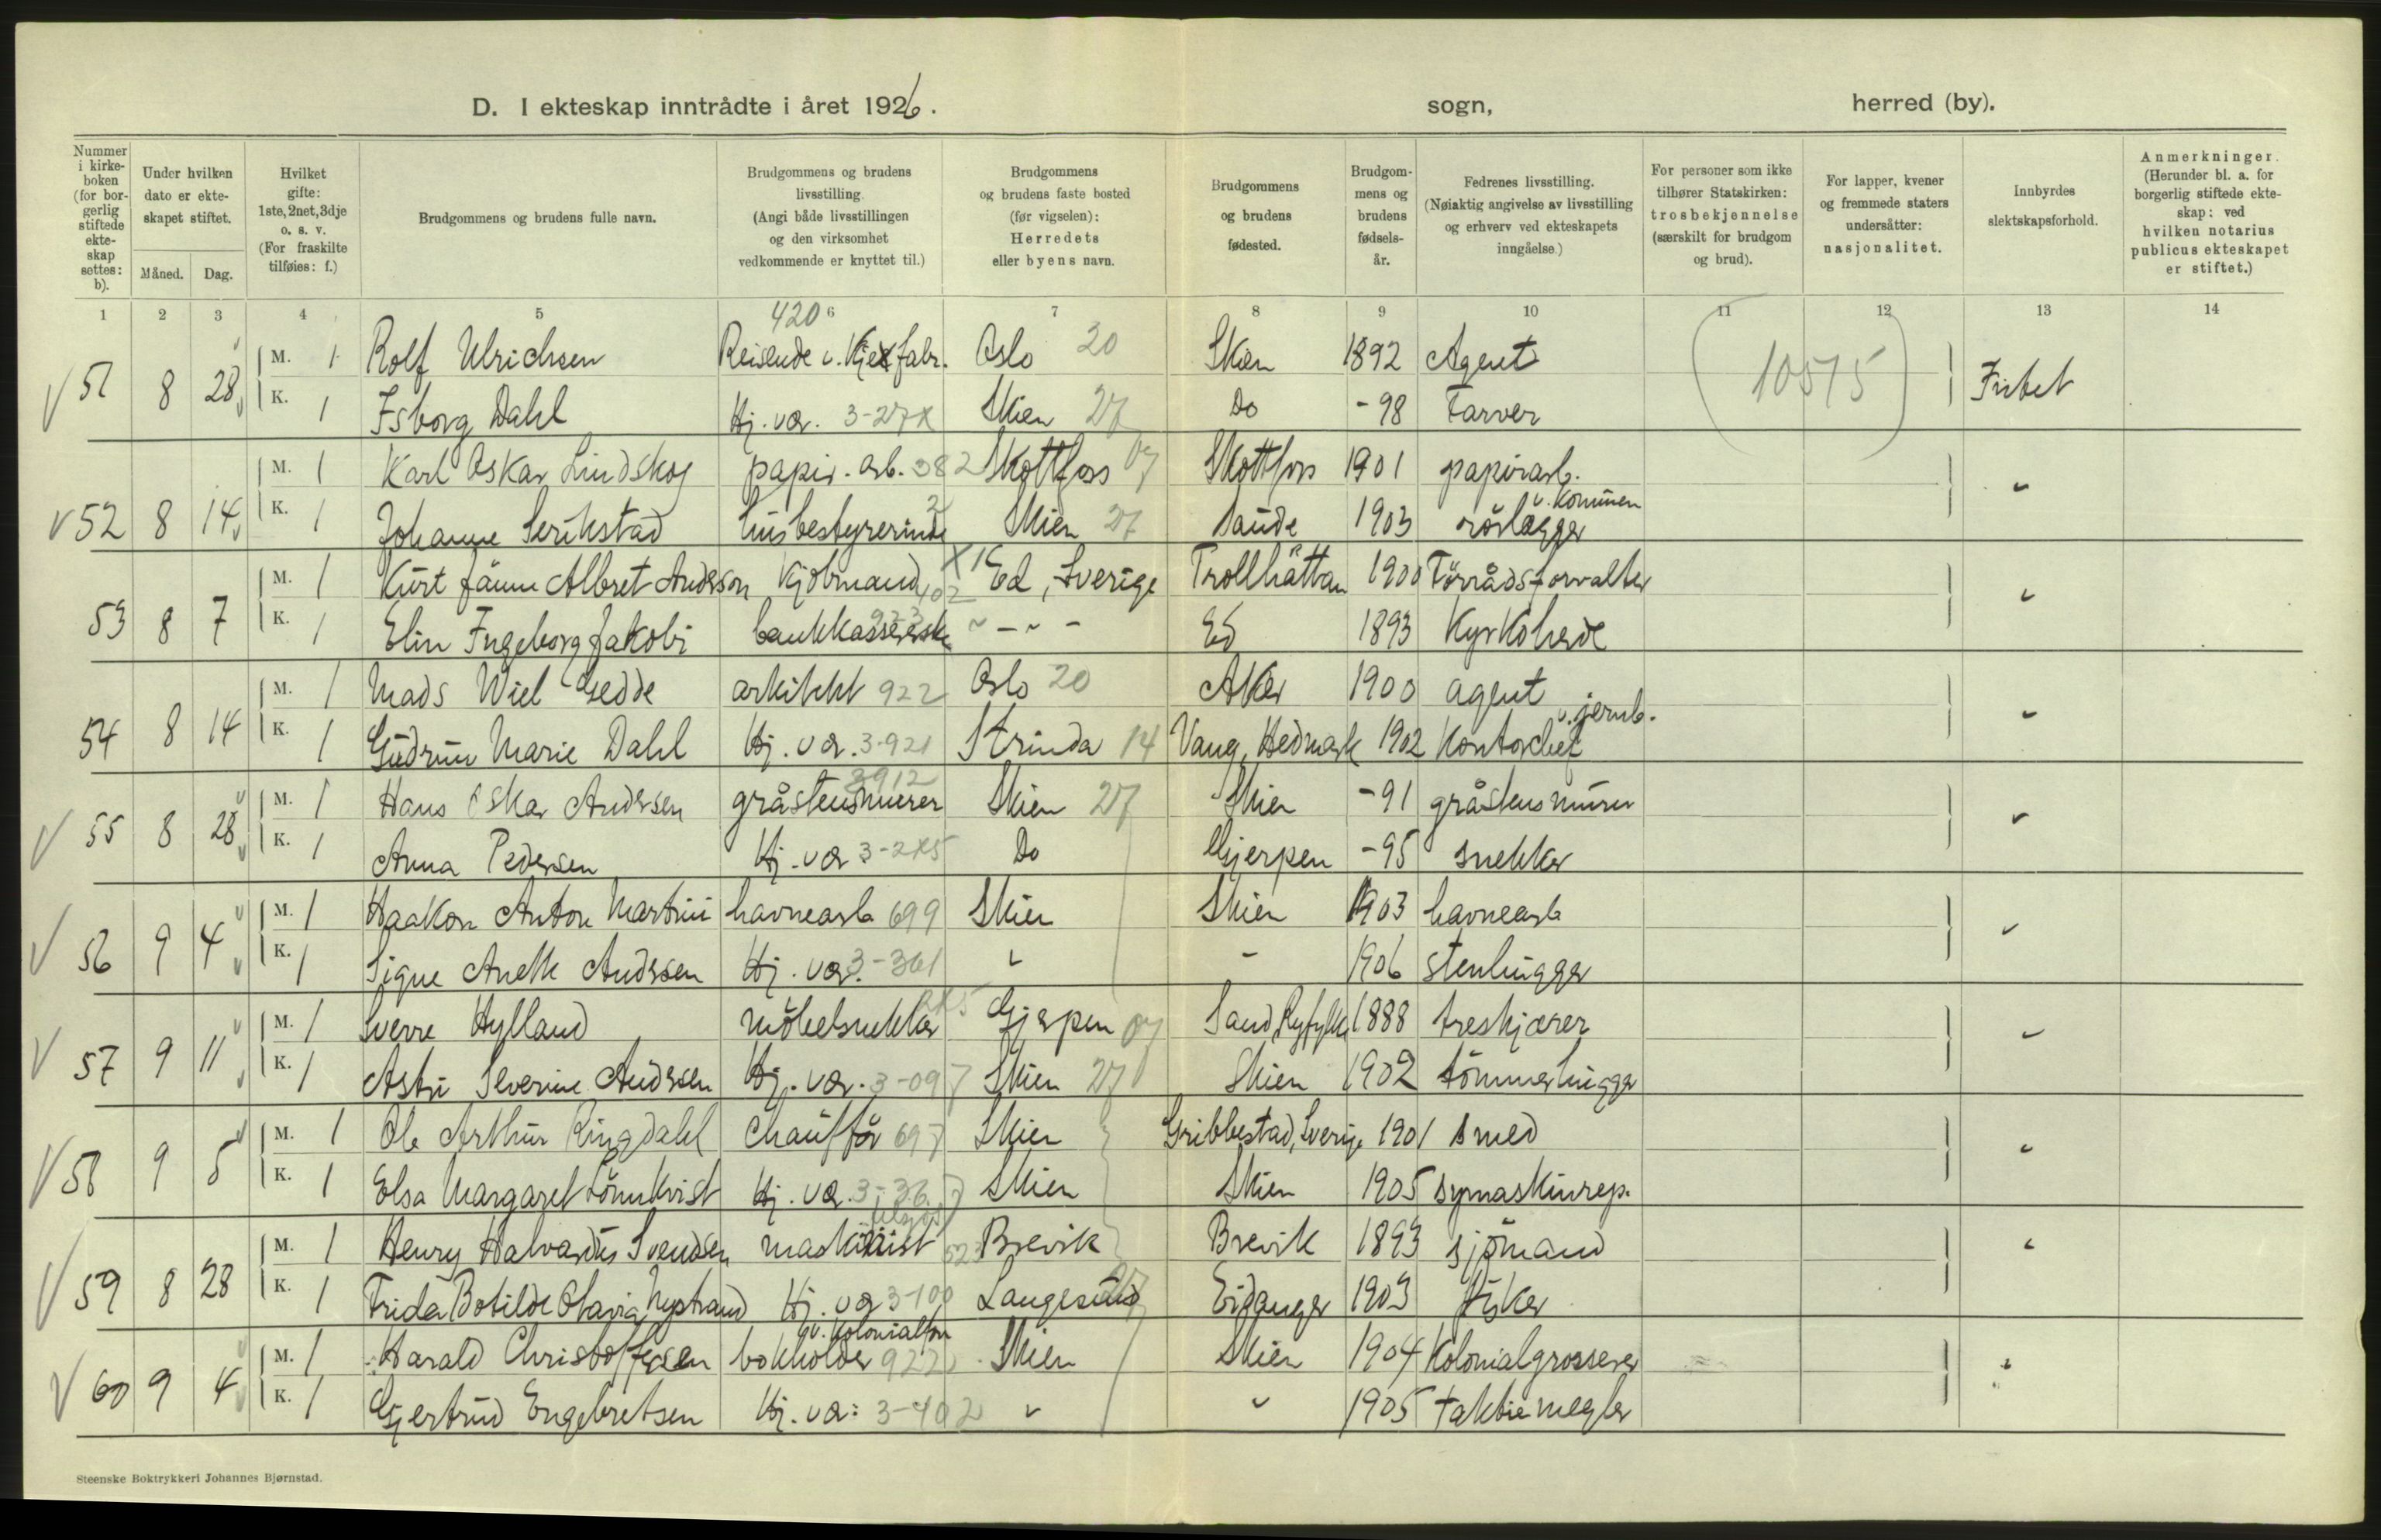 D. I ekteskap inntrådte i året 1926. sogn, herred (by).
Nummer i kirke-boken (for bor-gerlig stiftede ekte-skap settes: b).
Under hvilken dato er ekte-skapet stiftet.
Måned. Dag.
Hvilket gifte: 1ste, 2net, 3dje o. s. v. (For fraskilte tilføies: f.)
Brudgommens og brudens fulle navn.
Brudgommens og brudens livsstilling. (Angi både livsstillingen og den virksomhet vedkommende er knyttet til.)
Brudgommens og brudens faste bosted (før vigselen): Herredets eller byens navn.
Brudgommens og brudens fødested.
Brudgom-mens og brudens fødsels-år.
Fedrenes livsstilling. (Nøiaktig angivelse av livsstilling og erhverv ved ekteskapets inngåelse.)
For personer som ikke tilhører Statskirken: trosbekjennelse (særskilt for brudgom og brud).
For lapper, kvener og fremmede staters undersåtter: nasjonalitet.
Innbyrdes slektskapsforhold.
Anmerkninger. (Herunder bl. a. for borgerlig stiftede ekte-skap: ved hvilken notarius publicus ekteskapet er stiftet.)
1 2 3 4 5 6 7 8 9 10 11 12 13 14
420
51 8 28 M. 1 Rolf Ulrichsen Reisende v. Kjexfabr. Oslo 20 Skien 1892 Agent (10515) Intet
K. 1 Isborg Dahl Hj. vær. 3-27x Skien 27 Do -98 Farver
52 8 14 M. 1 Karl Oskar Lindskog papir. arb. 382 Skotfoss 07 Skotfoss 1901 papirarb. "
K. 1 Johanne Serikstad husbestyrerinde Skien 27 Saude 1903 rörlægger v. kommunen
53 8 7 M. 1 Kurt Albret Andersson Kjöbmand 402 Ed, Sverige Trollhättan 1900 Förrådsforvalter "
K. 1 Elin Ingeborg Jakobi bankkassererske 923 " - " - Ed 1893 Kyrkoherde
54 8 14 M. 1 Mads Wiel Gedde arkitekt 922 Oslo 20 Aker 1900 agent "
K. 1 Gudrun Marie Dahl Hj. vær. 3-921 Strinda 14 Vang, Hedmark 1902 Kontorchef v. jernb.
55 8 28 M. 1 Hans Oskar Andersen gråstensmurer 3912 Skien 27 Skien -91 gråstensmurer "
K. 1 Anna Pedersen Hj. vær 3-2x5 Do Gjerpen -95 snekker
56 9 4 M. 1 Haakon Anton Martini havnearb 699 Skien Skien 1903 havnearb "
K. 1 Signe Anette Andersen Hj. vær. 3-361 " - 1906 stenhugger
57 9 11 M. 1 Sverre Hylland möbelsnekker Gjerpen 07 Sand, Ryfylke 1888 treskjærer "
K. 1 Astri Severine Andersen Hj. vær. 3-097 Skien 27 Skien 1902 tömmerhugger
58 9 5 M. 1 Ole Arthur Ringdahl Chaufför 697 Skien Gribbestad, Sverige 1901 smed "
K. 1 Elsa Margaret Lönnkvist Hj. vær. 3-36 Skien Skien 1905 symaskinrep.
59 8 28 M. 1 Henry Halvardus Svendsen maskinist 523 Brevik Brevik 1893 sjömand "
K. 1 Frida Botilde Olavia Nystrand Hj. vær 3-100 Langesund 27 Eidanger 1903 fisker
60 9 4 M. 1 Harald Christoffersen bokholder v. kolonialfor. 922 Skien Skien 1904 Kolonialgrosserer "
K. 1 Gjertrud Engebretsen Hj. vær: 3-402 " " 1905 aktiemegler
Steenske Boktrykkeri Johannes Bjørnstad.